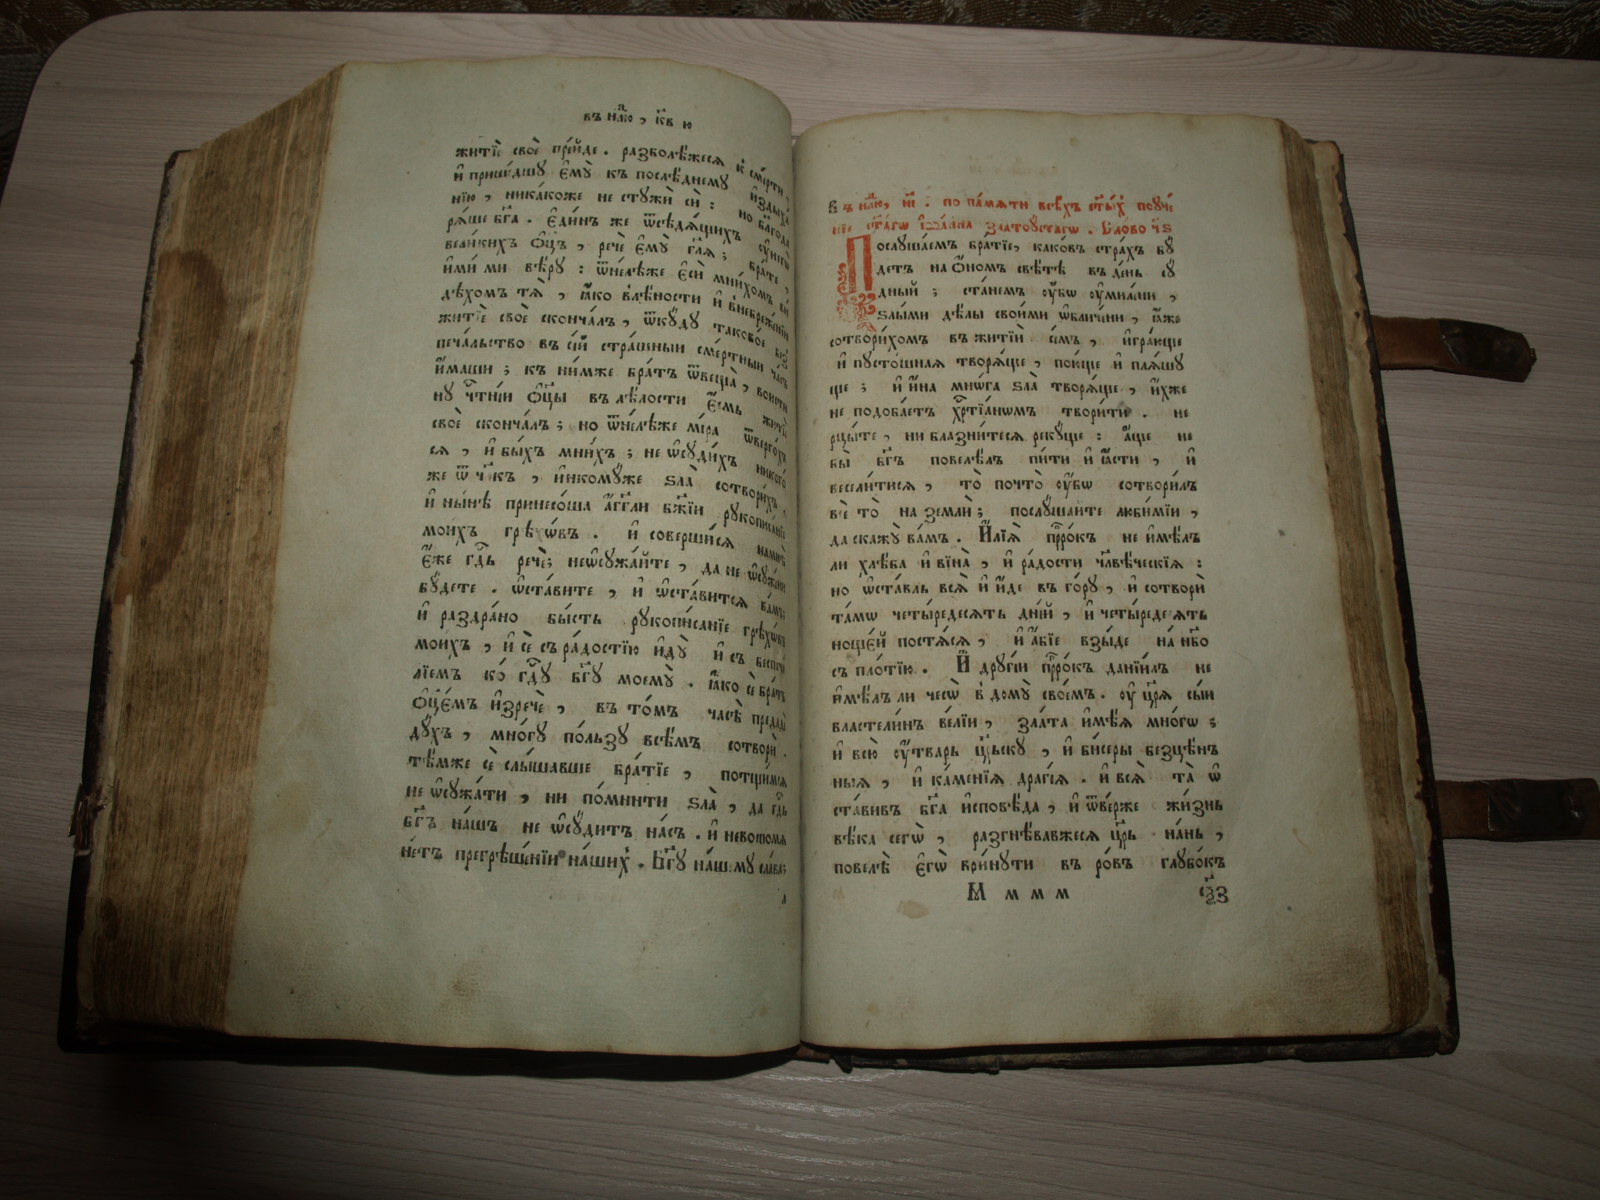 въ нл҃ю, к҃в ю
житїе своѐ пре́йде. разболѣ́жеся к̾ сме́рти,
и҆ прише́дшу є҆мꙋ̀ къ послѣ́днему и҆здыха́
нїю, ника́коже не стужѝ сѝ: но бл҃годе
ря́ше бг҃а. є҆ди́нъ же ѿ сѣдя́щихъ ᲂу҆ него̀
вели́кихъ ѻ҆ц҃ъ, речѐ є҆мꙋ̀ гл҃я; бра́те,
и҆ми́ ми вѣ́ру: ѿне́лѣже є҆сѝ мни́хомъ ви
дѣ́хомъ тя̀, ꙗ҆́ко в̾лѣ́ности и҆ в̾небреже́нїи
житїе своѐ сконча́лъ, ѿкꙋ́дꙋ таково́е без
печа́льство въ сі́й стра́шныи сме́ртныи ча́съ
и҆́маши; къ ни́мже бра́тъ ѿвеща̀, вои́сти
ну чⷭ҇тні́и ѻ҆ц҃ы въ лѣ́лости є҆́смь житїѐ
своѐ сконча́лъ; но ѿне́лѣже ми́ра ѿверго́х
ся, и҆ бы́хъ мни́хъ; не ѡ҆суди́хъ никого̀
же ѿ чл҃къ, и҆ никомꙋ́же ѕла̀ сотвори́хъ,
и҆ ны́нѣ принесо́ша а҆́гг҃ли бж҃їи рукописа́нїе
мои́хъ грѣхо́въ. и҆ соверши́ся на мнѣ̀
є҆́же гд҃ь речѐ; не ѡ҆сужа́йте, да не ѡ҆сꙋ́ж́ени
бꙋ́дете. ѡ҆ста́вите, и҆ ѡ҆ста́вится ва́мъ;
и҆ раздра́но бы́сть рукописа́нїе грѣхо́въ
мои́хъ, и҆ сѐ съ ра́достїю и҆дꙋ̀ и҆ съ весе́
лїемъ ко́ гд҃у бг҃у моему̀. ꙗ҆́ко сѐ бра́тъ
ѻ҆ц҃е́мъ и҆зречѐ, въ то́мъ часѣ̀ преда́дꙋ
дꙋ́хъ, мно́гу по́льзу всѣ́мъ сотворѝ.
тѣ́мже сѐ слы́шавше бра́тїе, потщи́мся
не ѡ҆сужа́ти, ни по́мнити ѕла̀, да гд҃ь
бг҃ъ на́шъ не ѡ҆сꙋ́дитъ на́съ. и҆ не во́помя
не́тъ прегрѣше́нїи на́шихъ. Бг҃у на́шему сла́ва;
Въ нл҃ю, н҃. по па́мяти всѣ́хъ ст҃ы́хъ поуче́
нїе ст҃а́гѡ і҆ѡа́нна златоуста́гѡ. Сло́во ч҃ѕ
Послꙋ́шаемъ бра́тїе, како́въ стра́хъ бꙋ́
детъ на ѻ҆́номъ свѣ́тѣ въ де́нь сꙋ́
дный; ста́немъ ᲂу҆́бѡ ᲂу҆ми́льни,
ѕлы́ми дѣ́лы свои́ми ѡ҆бличи́ни, ꙗ҆́же
сотвори́хомъ въ житїѝ се́мъ, и҆гра́юще
и҆ пусто́шная творя́ще, пою́ще и҆ пля́шу
ще; и҆ и҆́на мно́га ѕла̀ творя́ще, и҆́хже
не подоба́етъ хрⷭ҇тїа́номъ твори́ти. не
рцы́те, ни блазни́теся рекꙋ́ще: а҆́ще не
бы̀ бг҃ъ повелѣ́лъ пи́ти и҆ ꙗ҆́сти, и҆
весели́тися, то̀ почто̀ ᲂу҆́бѡ сотвори́лъ
всѐ то̀ на землѝ; послꙋ́шайте люби́мїи,
да скажꙋ̀ ва́мъ. И҆лїя̀ прⷪ҇ро́къ не и҆мѣ́лъ
ли хлѣ́ба и҆ вїна̀, и҆ ра́дости чл҃вѣ́ческїя:
но ѡ҆ста́вль вся̀ и҆ и҆́де въ го́ру, и҆ сотворѝ
та́мѡ четы́редесять днїй, и҆ четы́редесять
ноще́й постя́ся, и҆ а҆́бїе взы́де на́ нб҃о
съ пло́тїю. И҆ други́и прⷪ҇ро́къ данїи́лъ не
и҆мѣ́лъ ли чесѡ̀ в̾ домꙋ̀ свое́мъ. ᲂу҆ цр҃я̀ сы́и
властели́нъ ве́лїи, зла́та и҆мѣ́я мно́гѡ;
и҆ всю̀ ᲂу҆́тварь цр҃ску, и҆ би́серы безцѣ́н
ныя, и҆ ка́менїя драгі́я. и҆ вся̀ та̀ ѡ҆
ста́вивъ бг҃а и҆сповѣ́да, и҆ ѿве́рже жи́знь
вѣ́ка сегѡ̀, разгнѣ́вавжеся цр҃ь на́нь,
повелѣ̀ є҆гѡ̀ври́нути въ ро́въ глубо́къ
М м м м